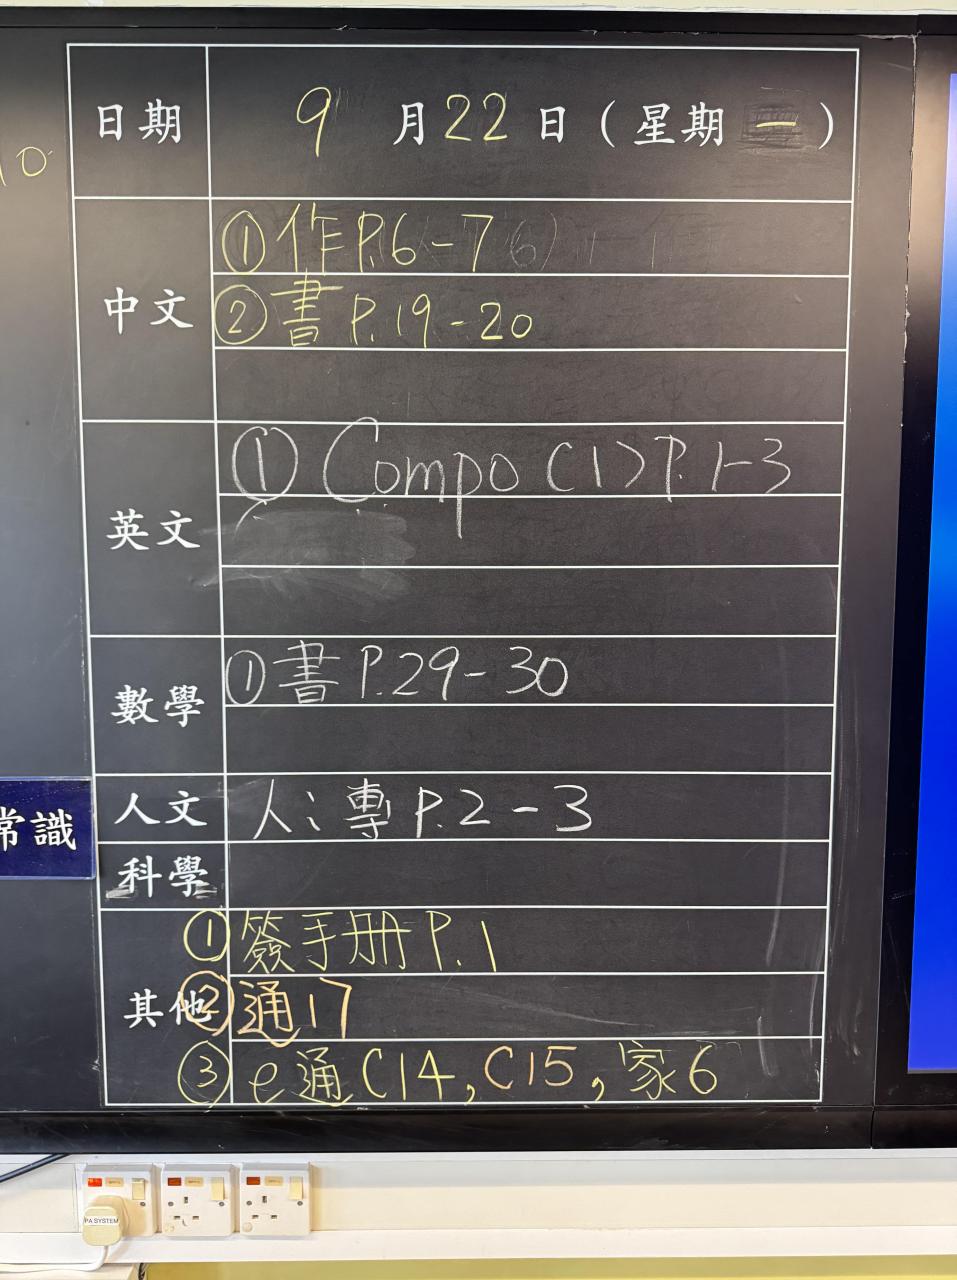 日期 9月22日(星期一)
10
中文
①作P.6-7
②書P.19-20
英文
①Compo(1)P.1-3
數學
①書P.29-30
人文 人:專P.2-3
常識
科學
其他
①簽手册P.1
②通17
③e通C14,C15,家6
PA SYSTEM